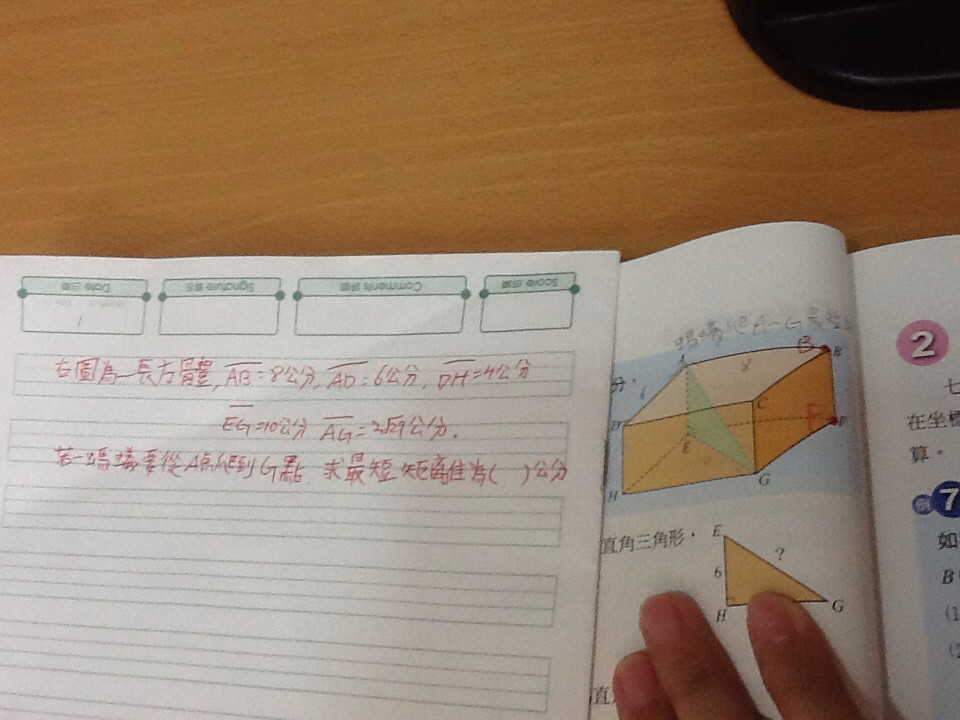 Score 評鑑
Comments 評語
Signature 簽名
Date 日期
右圖為一長方體, AB=8公分, AD=6公分, DH=4公分
EG=10公分 AG=2√29公分.
若一螞蟻要從A點爬到G點 求最短矩離佳為( )公分
螞蟻爬A~G最短
A
8
B
B
6
分.
D
C
E
F
F
G
H
直角三角形，
E
?
6
H
G
直
2
七
在坐標
算。
例 7
如
B
(1
(2